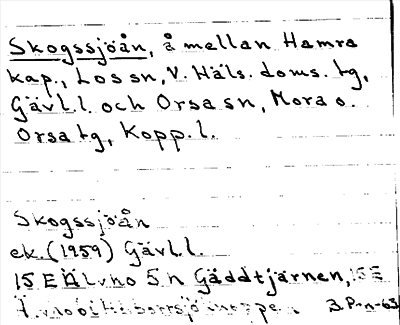 Skogssjöån, å mellan Hamra
kap., Los sn, V. Häls. doms. tg,
Gävl.l. och Orsa sn, Mora o.
Orsa tg, Kopp. l.
Skogssjöån
ek. (1959) Gävl.l.
15 E Älvho 5 n Gäddtjärnen, 15 E